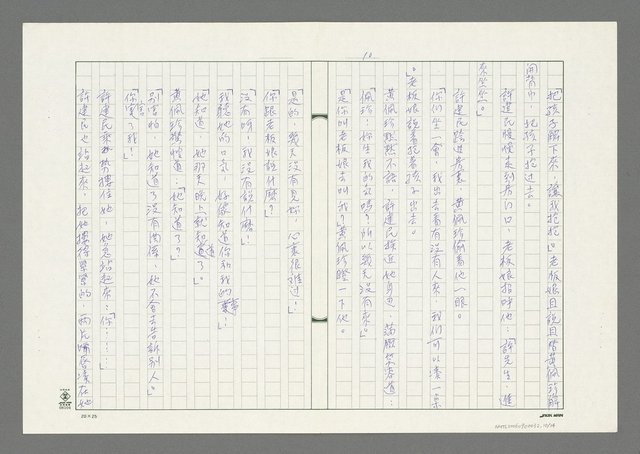 10
「把孩子解下來，讓我抱抱。」老板娘且說且替黃佩珍解
開背巾，把孩子抱過去。
許建民慢慢走到房門口，老板娘招呼他：「許先生，進
來坐坐。」
許建民踏進房裏，黃佩珍偷看他一眼。
「你們坐一會，我出去看有沒有人來，我們可以湊一桌
。」老板娘說着抱着孩子出去。
黃佩珍默然不語，許建民挨近她身邊，
「佩珍，你生我的氣嗎？所以幾天沒有來。」
「是你叫老板娘去叫我？」黃佩珍瞪一下他。
「是的，幾天沒有見妳，心裏很難過！」
「你跟老板娘說什麼？」
「沒有呀，我沒有說什麼！」
「我聽她的口氣，好像知道你和我的事！」
「她知道，她那天晚上就知道了。」
黃佩珍驚惶道：「她知道了？」
「別害怕，她知道了沒有關係，她不會去告訴別人。」
「你害了我！」
許建民乘勢摟住她，她急站起來：「你……」
許建民也站起來，把她摟得緊緊的，兩片嘴唇湊在她
20×25